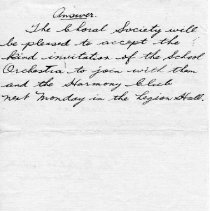 Answer.
The Choral Society will
be pleased to accept the
kind invitation of the School
Orchestra to join with them
and the Harmony Club
next Monday in the Legion Hall.